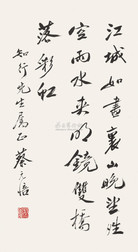 江城如畫裏山晚望晴
空雨水夾明鏡雙橋
落彩虹
知行先生屬正 蔡元培